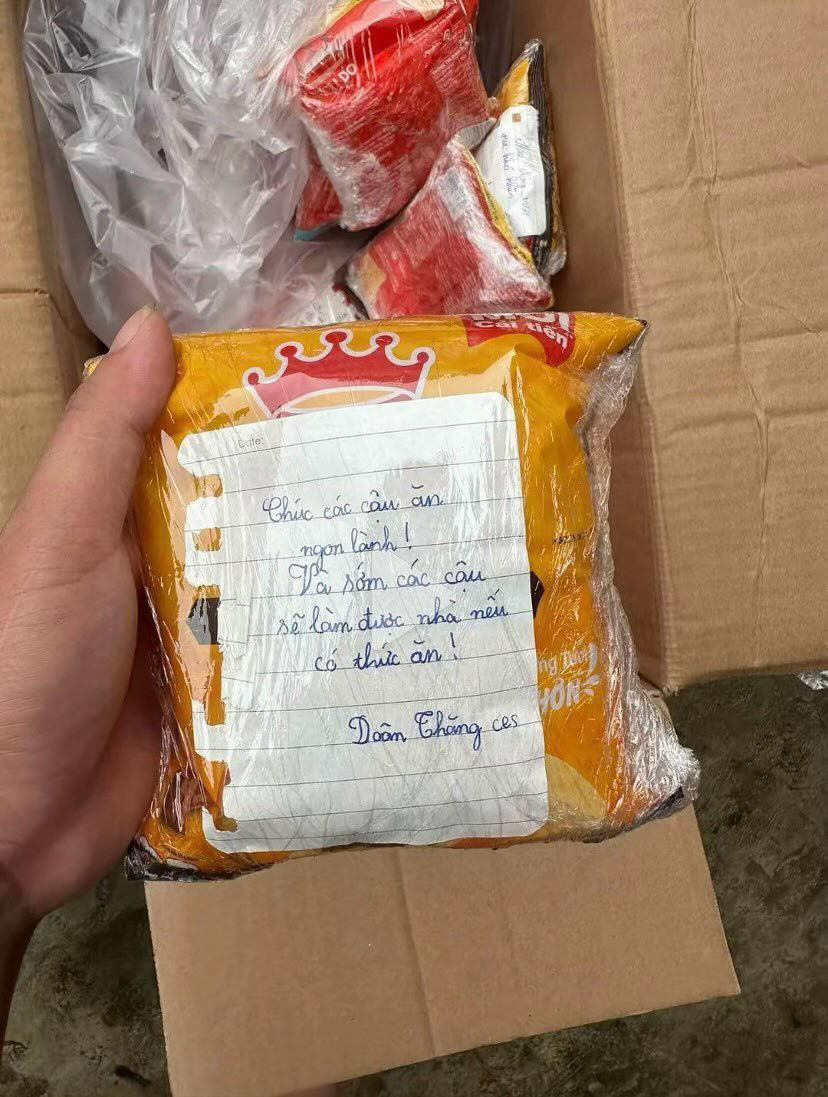 DO
MỚI
Cải tiến
Date:
Chúc các cậu ăn
ngon lành!
Và sớm các cậu
sẽ làm được nhà nếu
có thức ăn!
Doãn Thăng ces